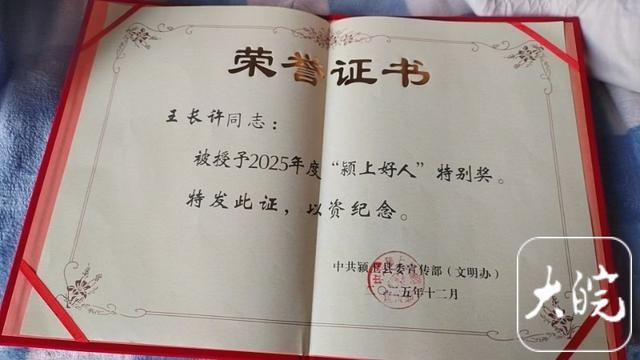 荣誉证书
王长许同志：
被授予2025年度“颍上好人”特别奖。
特发此证，以资纪念。
中共颍上县委宣传部（文明办）
二〇二五年十二月
大皖